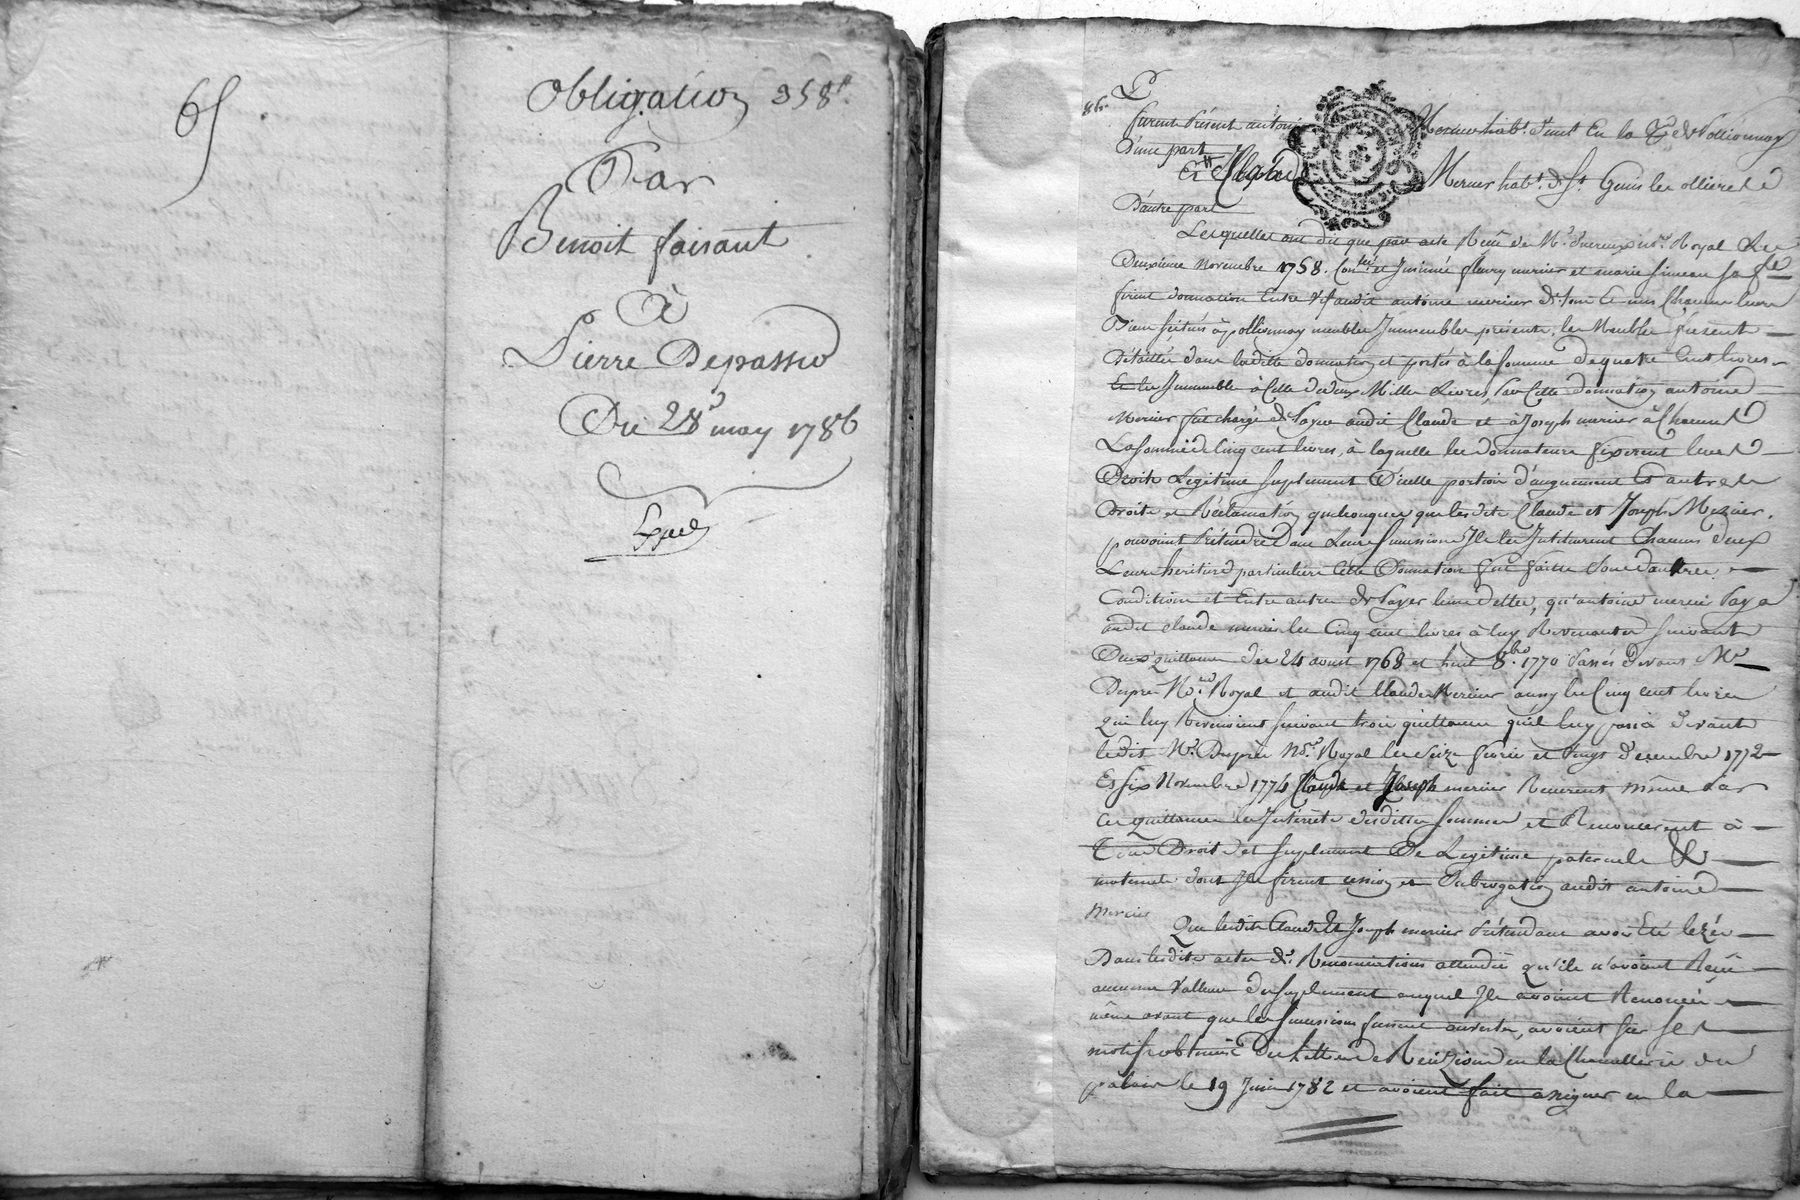 65
Obligation 358#
Par
Benoit faisant
à
Pierre Depassio
Du 28 may 1786
furent Présent antoine Mercier habt. En la de Pollionnay
D'une part
Et Claude Mercier habt. de St. Genis les ollieres
D'autre part
Lesquelles ont dit que par acte Reçu de Me. Royal Le
Deuxième Novembre 1758. et Insinué fleury mercier et marie simean sa fe
firent donnation Entre Vifs audit antoine mercier de tous Et uns Chacuns leurs
Biens scitués à pollionnay meubles Immeubles présents, les Meubles furent
Détaillés dans laditte donnation et portés à la somme de quatre Cent livres
Et les Immeubles à Celle de deux Mille Livres, Par Cette donnation antoine
Mercier fut chargé de Payer audit Claude et à Joseph mercier à Chacun
La somme de Cinq cent livres, à laquelle les donnateurs fixerent leurs
Droits Légitime suplement D'icelle portion d'augment Et autres
Droits et Réclamation quelconques que lesdits Claude et Joseph Mercier.
pouvoient Prétendre Dans Leurs successions Ils les Instituerent Chacun d'eux
Leurs heritiers particuliers Cette Donnation fut faitte Sous d'autres
Conditions et Entre autres de Payer leurs dettes, qu'antoine mercier Paya
audit claude mercier les Cinq cent livres à luy Revenantes suivant
Deux quittances des 24 aoust 1768 et huit 8bre. 1770 Passés devant Me
Dupré Nore. Royal et audit Claude Mercier aussy les Cinq cent livres
qui luy Revenoient suivant trois quittances qu'il luy passa devant
ledit Me. Dupré Nore. Royal les seize fevrier et Vingt Décembre 1772
Et six Novembre 1774 Claude et Joseph mercier Reçurent même Par
Ces quittances les Intérêts desdittes sommes et Renoncerent à
Tous Droit et suplement De Légitime paternels &
maternels dont Ils firent cession et Subrogation audit antoine
Mercier
Que lesdits Claude Et Joseph mercier Prétendant avoir Eté lezés
Dans lesdits actes de Renonciations attendu qu'ils n'avoient Reçu
aucunne Valleur du suplement auquel Ils avoient Renoncé
même avant que les successions fussent ouvertes, avoient sur ses
motifs obtenus Des Lettres de Rescizion en la Chancellerie du
palais le 19 Juin 1782 et avoient fait assigner en la